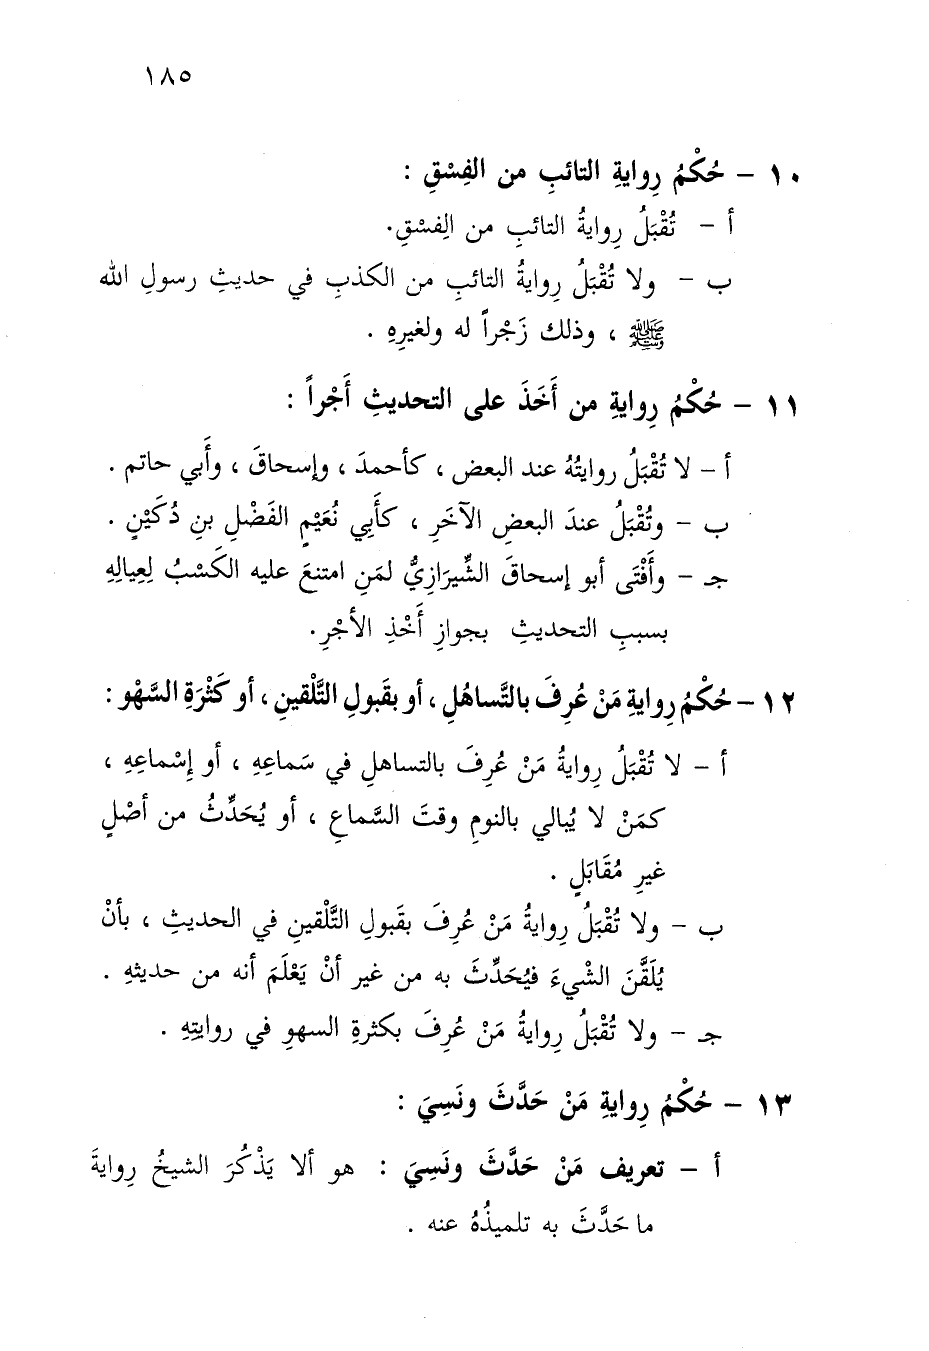 ١٨٥
١٠ - حُكْمُ رِوايةِ التائبِ من الفِسْقِ :
أ - تُقْبَلُ رِوايةُ التائبِ من الفِسْقِ.
ب - ولا تُقْبَلُ رِوايةُ التائبِ من الكذبِ في حديثِ رسولِ الله
ﷺ ، وذلك زَجْراً له ولغيرِهِ .
١١ - حُكْمُ رِوايةِ من أَخَذَ على التحديثِ أَجْراً :
أ - لا تُقْبَلُ روايتُهُ عند البعض ، كأحمدَ ، وإسحاقَ ، وأَبي حاتم .
ب - وتُقْبَلُ عندَ البعضِ الآخَرِ ، كأَبِي نُعَيْمٍ الفَضْلِ بنِ دُكَيْنٍ .
جـ - وأَفْتَى أبو إسحاقَ الشِّيرَازِيُّ لمَنِ امتنعَ عليه الكَسْبُ لِعِيالِهِ
بسببِ التحديثِ بجوازِ أَخْذِ الأجْرِ.
١٢ - حُكْمُ رِوايةِ مَنْ عُرِفَ بالتَّساهُلِ ، أو بقَبولِ التَّلْقينِ ، أو كَثْرَةِ السَّهْو :
أ - لا تُقْبَلُ رِوايةُ مَنْ عُرِفَ بالتساهلِ في سَماعِهِ ، أو إِسْماعِهِ ،
كمَنْ لا يُبالي بالنومِ وقتَ السَّماعِ ، أو يُحَدِّثُ من أصْلٍ
غيرِ مُقَابَلٍ .
ب - ولا تُقْبَلُ رِوايةُ مَنْ عُرِفَ بقَبولِ التَّلْقينِ في الحديثِ ، بأنْ
يُلَقَّنَ الشْيءَ فيُحَدِّثَ به من غير أنْ يَعْلَمَ أنه من حديثهِ .
جـ - ولا تُقْبَلُ رِوايةُ مَنْ عُرِفَ بكثرةِ السهوِ في روايتِهِ .
١٣ - حُكْمُ رِوايةِ مَنْ حَدَّثَ ونَسِيَ :
أ - تعريف مَنْ حَدَّثَ ونَسِيَ : هو ألا يَذْكُرَ الشيخُ رِوايةَ
ما حَدَّثَ به تلميذُهُ عنه .